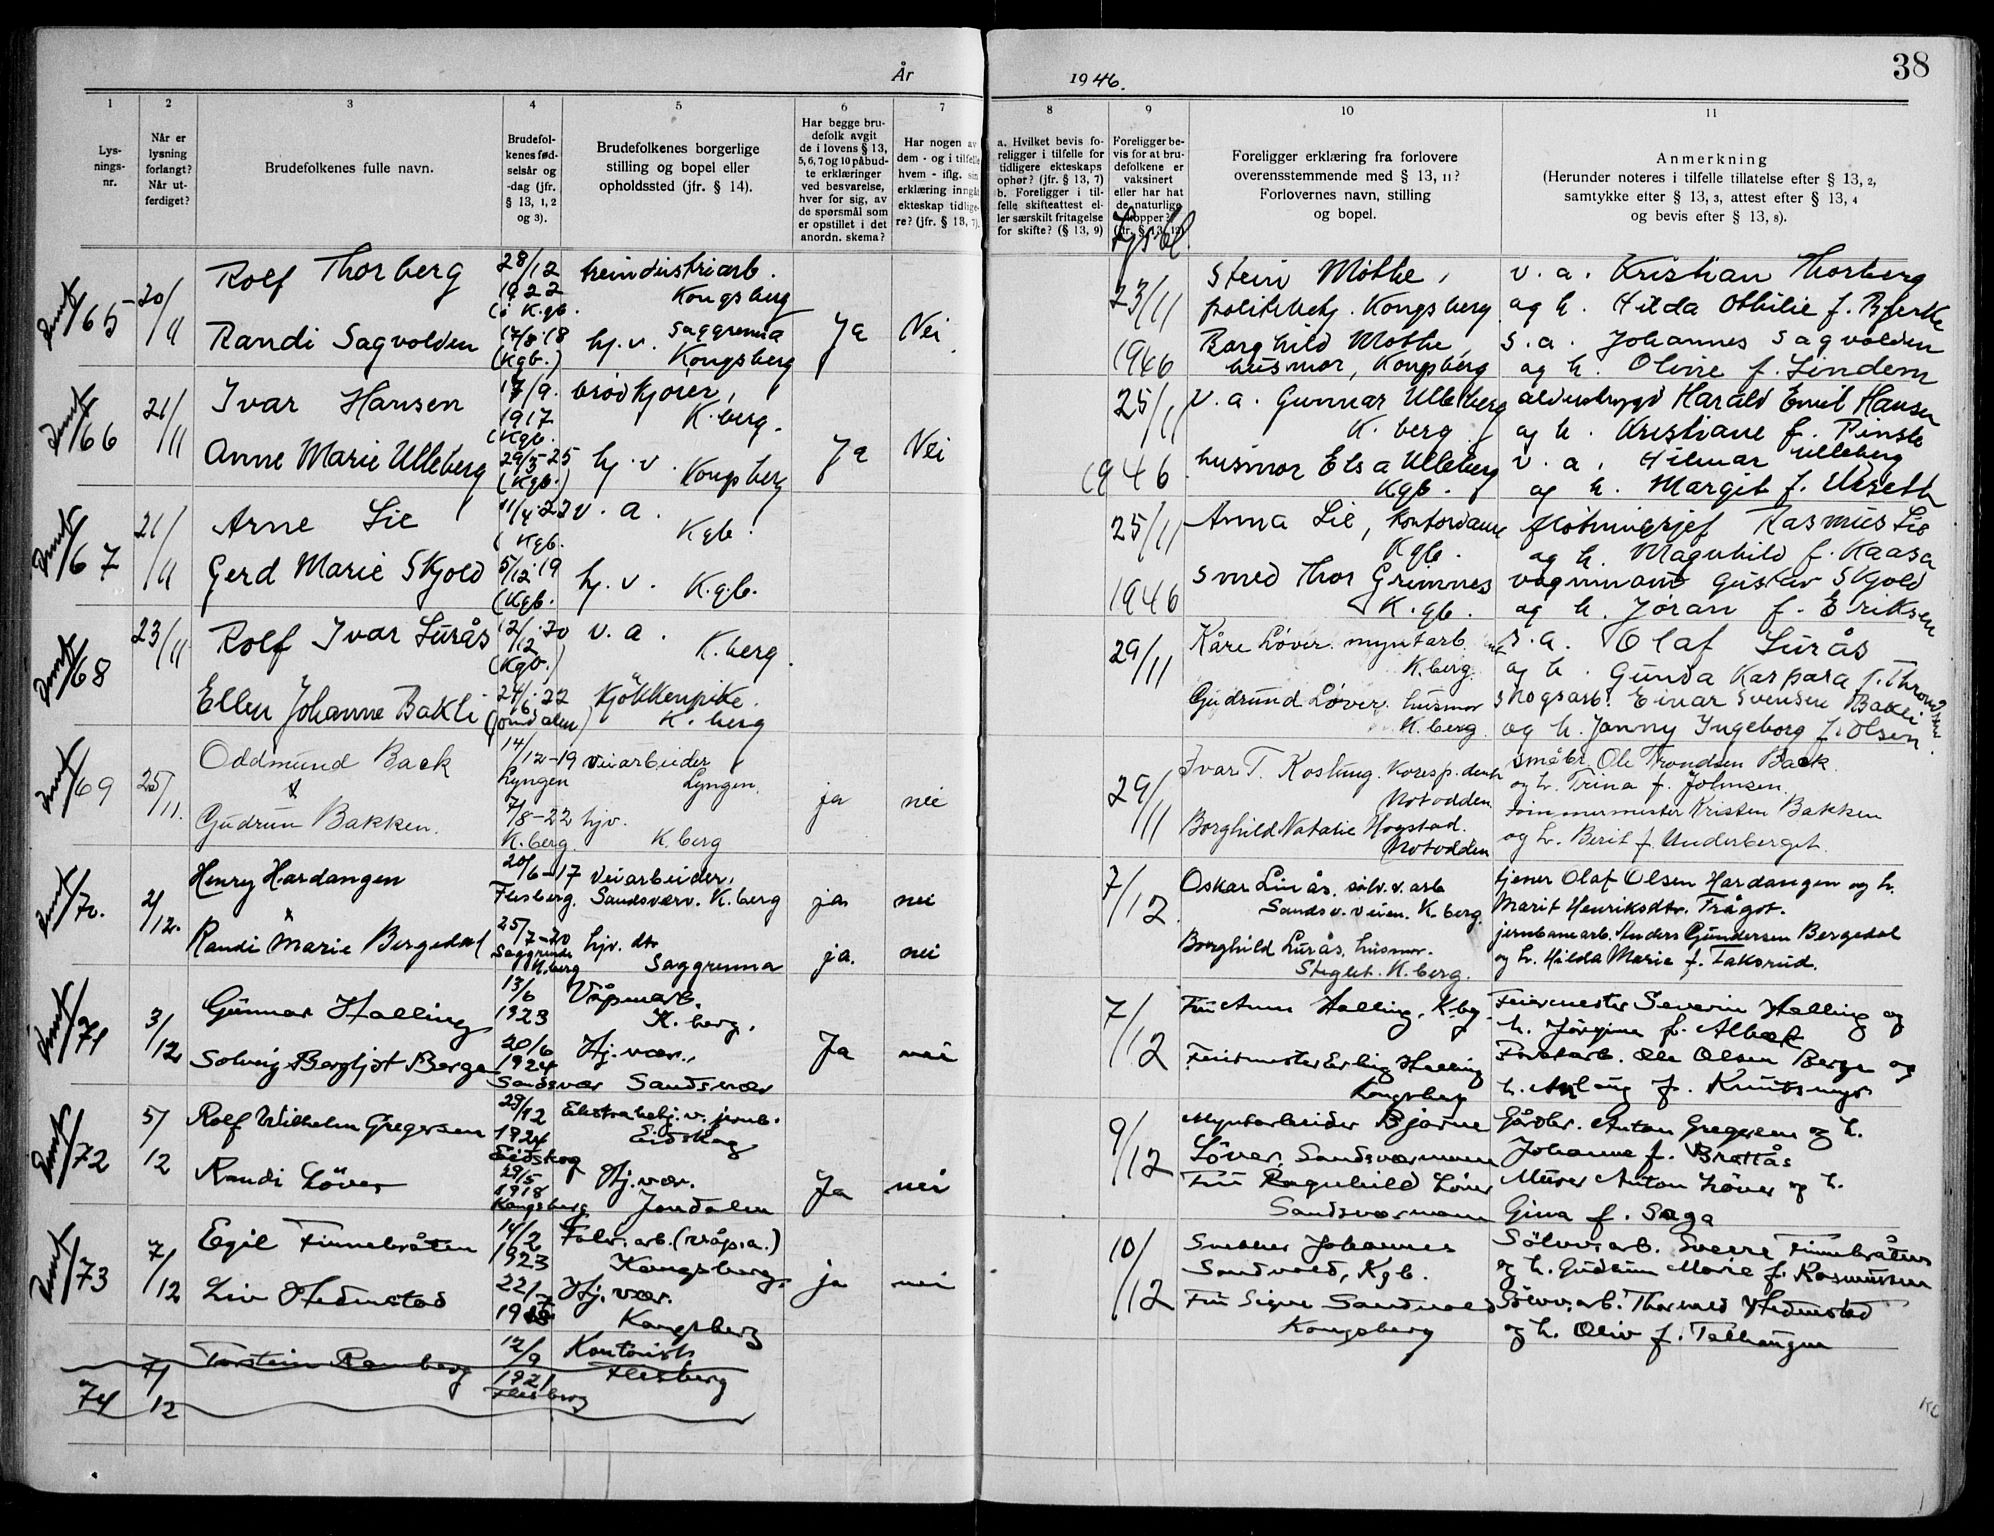 År
1946.
38
1
2
3
4
5
6
7
8
9
10
11
Lys-
nings-
nr.
Når er
lysning
forlangt?
Når ut-
ferdiget?
Brudefolkenes fulle navn.
Brudefol-
kenes fød-
selsår og
-dag (jfr.
§ 13, 1, 2
og 3).
Brudefolkenes borgerlige
stilling og bopel eller
opholdssted (jfr. § 14).
Har begge bru-
defolk avgit
de i lovens § 13,
5, 6, 7 og 10 påbud-
te erklæringer
ved besvarelse,
hver for sig, av
de spørsmål som
er opstillet i det
anordn. skema?
Har nogen av
dem - og i tilfelle
hvem - iflg. sin
erklæring inngått
ekteskap tidlige-
re? (jfr. § 13, 7).
a. Hvilket bevis fo-
religger i tilfelle for
tidligere ekteskaps
ophør? (jfr. § 13, 7)
b. Foreligger i til-
felle skifteattest el-
ler særskilt fritagelse
for skifte? (§ 13, 9)
Foreligger be-
vis for at bru-
defolkene er
vaksinert
eller har hat
de naturlige
kopper?
(jfr. § 13, 12)
Foreligger erklæring fra forlovere
overensstemmende med § 13, 11?
Forlovernes navn, stilling
og bopel.
Anmerkning
(Herunder noteres i tilfelle tillatelse efter § 13, 2,
samtykke efter § 13, 3, attest efter § 13, 4
og bevis efter § 13, 8).
65 20/11 Rolf Thorberg 28/12 1922 (i K.gb. Kongsberg
Randi Sagvolden 17/8.18 (Kgb.) hj.v. Saggrenna Kongsberg Ja Nei
23/11 1946 Stein Møthe, Kongsberg
Borghild Møthe husmor, Kongsberg
v. a. Kristian Thorberg
og h. Hilda Othilie f. Bjerke
s. a. Johannes Sagvolden
og h. Oline f. Lindem
66 21/11 Ivar Hansen 17/9. 1917 (Kgb. brødkjører, K.berg.
Anne Marie Ulleberg 29/5-25 (Kgb.) hj. v. Kongsberg Ja Nei
25/11 1946 v. a. Gunnar Ulleberg K. berg
husmor Elsa Ulleberg Kgb.
Harald Emil Hansen
og h. Kristiane f.
v. a. Hilmar Ulleberg
og h. Margit f.
67 21/11 Arne Lie 11/4.22 (Kgb. v. a. Kgb.
Gerd Marie Skjold 5/12.19 (Kgb. hj. v. K.gb.
25/11 1946 Anna Lie, Kontordame Kgb.
smed Thor Grimnes K.gb.
Rasmus Lie
og h. Magnhild f. Kaasa
vognmann Gustav Skjold
og h. Jøran f. Eriksen
68 23/11 Rolf Ivar Lurås 12/12.20 (Kgb.) v. a. K.berg.
Ellen Johanne Bakli 24/6.22 (Jondalen) kjøkkenpike. K. berg
29/11 Kåre Løver. myntarb. K.berg.
Gudrund Løver. husmor K.berg.
s. a. Olaf Lurås
og h. Gunda Kaspara f. Throndsen
skogsarb. Einar Svensen Bakli
og h. Jenny Ingeborg f. Olsen.
69 25/11. Oddmund Back 14/12-19 Lyngen veiarbeider Lyngen.
Gudrun Bakken. 7/8-22 K.berg. hjv. K.berg ja nei
29/11 Ivar T. Kostung. Notodden
Borghild Natalie Hogstad. Notodden
småbr. Ole Trondsen Back.
og h. Trina f. Johnsen.
tømmermester Kristen Bakken
og h. Berit f. Underberget.
70. 2/12. Henry Hardangen 20/6-17 Flesberg. Veiarbeider. Sandsværv. K.berg ja nei
Randi Marie Bergedal 25/7-20 Saggrenda K.berg hjv. dtr Saggrenna ja. nei
7/12. Oskar Lurås. sølv.v.arb Sandsv.veien. K.berg.
Borghild Lurås, husmor. Steglet. K.berg.
tjener Olaf Olsen Hardangen og h.
Marit Henriksdtr. Trågot.
jernbanearb. Anders Gundersen Bergedal
og h. Hilda Marie f. Taksrud.
71 3/12 Gunnar Halling 13/6 1923 Våpenarb. K.berg.
Solveig Bergljot Berge 20/6 1924 Sandsvær Hj.vær., Sandsvær Ja nei
7/12 Halling, K.bg.
Erling Halling Kongsberg
Feiermester Severin Halling og
h. Jørgine f. Albæk
Ole Olsen Berge og
h. Aslaug f.
72 5/12 Rolf Wilhelm Gregersen 29/12 1924 Eidskog Eidskog
Randi Løver 29/5 1918 Kongsberg Hj.vær. Jondalen Ja nei
9/12 Myntarbeider Bjarne Løver, Sandsværmoen
Fru Ragnhild Løver Sandsværmoen
Gårdbr. Anton Gregersen og h.
Johanne f. Brattås
Murer Anton Løver og h.
Gina f. Saga
73 7/12 Egil Finnebråten 14/2 1923 Fabr. arb. (våp.a.) Kongsberg
Liv Hedenstad 22/7 Hj.vær. Kongsberg ja nei
10/12 Snekker Johannes Sandvold, Kgb.
Fru Signe Sandvold Kongsberg
Sølvv.arb. Sverre Finnebråten
og h. Gudrun Marie f. Rasmussen
Sølvv.arb. Thormod Hedenstad
og h. Oliv f.
74 7/12 Torstein Ramberg 12/9 1921 Flesberg Kontorist Flesberg